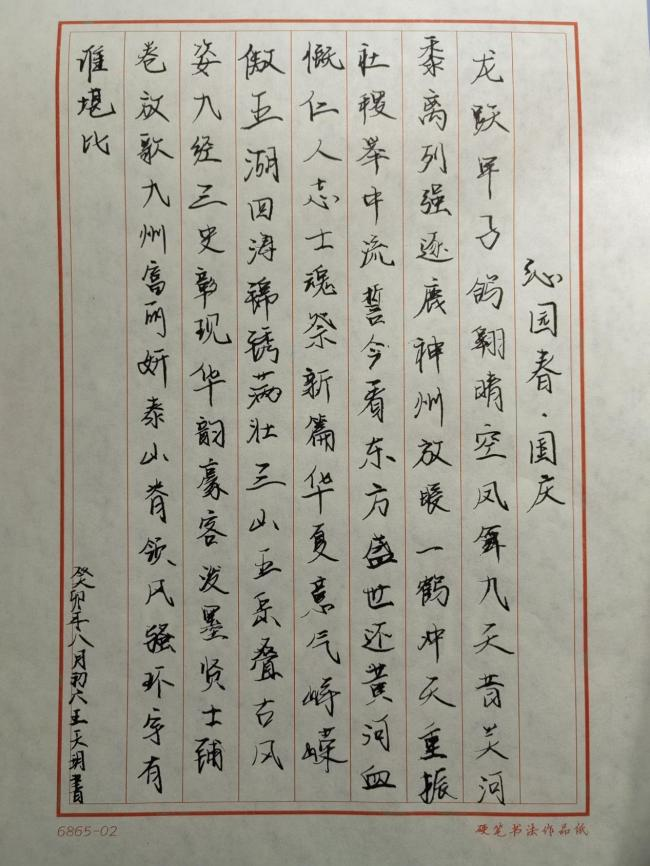 沁园春·国庆
龙跃甲子鸽翔晴空凤舞九天昔关河
黍离列强逐鹿神州放暖一鹤冲天重振
社稷举中流誓今看东方盛世还黄河血
慨仁人志士魂祭新篇华夏意气峥嵘
傲五湖四海锦绣满壮三山五岳叠古风
姿九经三史彰现华韵豪客泼墨贤士铺
卷放歌九州富丽妍泰山脊领风骚环宇有
谁堪比
癸卯年八月初六王天明書
6865-02
硬笔书法作品纸